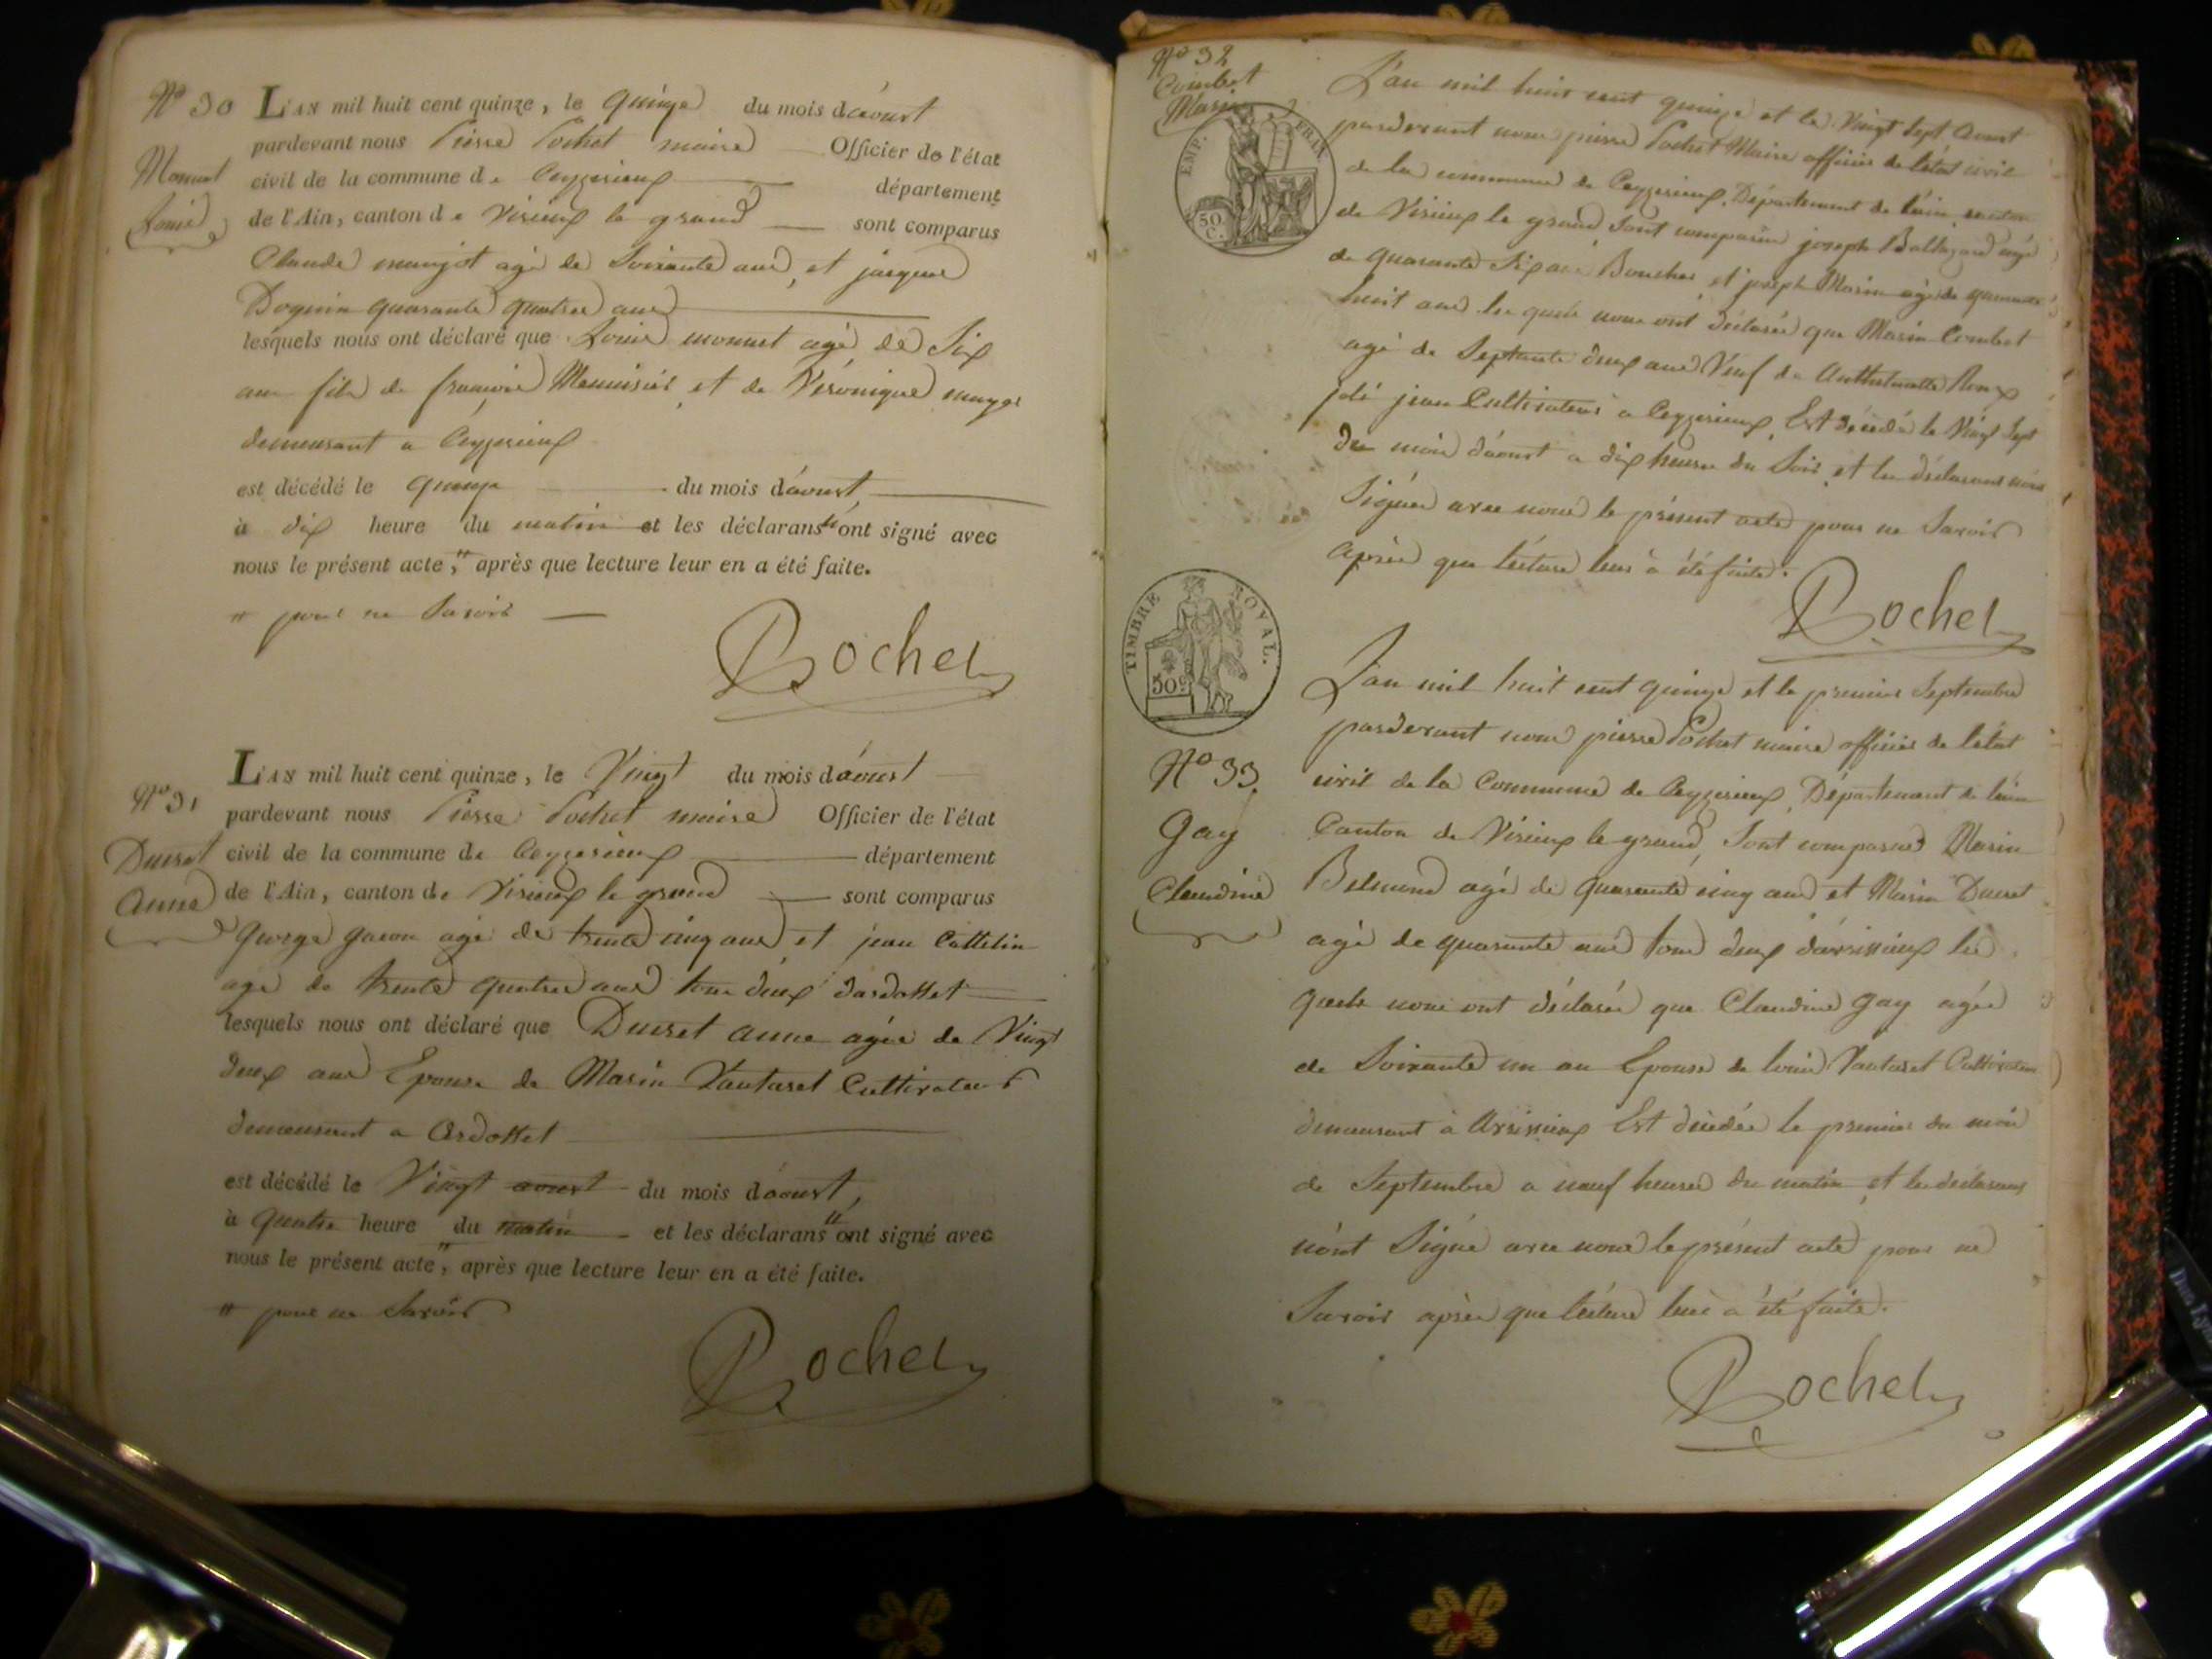 No 30
Monnet
Louis
L'AN mil huit cent quinze, le quinze du mois d'aoust
pardevant nous Pierre Pochet maire Officier de l'état
civil de la commune de Ceyzerieux département
de l'Ain, canton de Virieux le grand sont comparus
Claude mugot agé de Soixante ans, et jacques
Doquin quarante quatre ans
lesquels nous ont déclaré que Louis monnet agé de Six
ans fils de françois Menuisier et de Véronique
demeurant a Ceyzerieux
est décédé le quinze du mois d'aoust
à dix heure du matin et les déclarans n'ont signé avec
nous le présent acte, " après que lecture leur en a été faite.
" pour ne Savoir
Pochet
No 31
Ducret
Anne
L'AN mil huit cent quinze, le Vingt du mois d'aoust
pardevant nous Pierre Pochet maire Officier de l'état
civil de la commune de Ceyzerieux département
de l'Ain, canton de Virieux le grand sont comparus
George agé de trente cinq ans et jean Cattelin
age de trente quatre ans tous deux d'ardottet
lesquels nous ont déclaré que Ducret anne agée de Vingt
deux ans Epouse de Marin Vautaret Cultivateur
demeurant a Ardottet
est décédé le Vingt aoust du mois d'aoust,
à quatre heure du matin et les déclarans n'ont signé avec
nous le présent acte ", après que lecture leur en a été faite.
" pour ne Savoir
Pochet
No 32
Combet
Marin
EMP. FRAN.
50 C.
L'an mil huit cent quinze et le Vingt Sept Aoust
pardevant nous pierre Pochet Maire officier de l'état civil
de la commune de Ceyzerieux, Département de l'ain canton
de Virieux le grand Sont comparus joseph Baltazard agé
de quarante Six ans Boucher et joseph Marin agé de quarante
huit ans les quels nous ont déclarés que Marin Combet
agé de Septante deux ans Veuf de Anthelmette Roux
jean Cultivateur a Ceyzerieux, Est décédé le Vingt Sept
du mois d'aoust a dix heures du Soir, et les déclarans n'ont
Signés avec nous le présent acte pour ne Savoir
après que lecture leur à été faite.
Pochet
TIMBRE ROYAL.
50c
No 33.
Gay
Claudine
L'an mil huit cent quinze et le premier Septembre
pardevant nous pierre Pochet maire officier de l'état
civil de la Commune de Ceyzerieux, Département de l'ain
Canton de Virieux le grand, Sont comparus Marin
Belmond agé de quarante cinq ans et Marin Ducret
agé de quarante ans tous deux d'avrissieux les
quels nous ont déclarés que Claudine gay agée
de Soixante un an Epouse de Louis Vautaret Cultivateur
demeurant à Avrissieux Est décédée le premier du mois
de Septembre a neuf heures du matin et les déclarans
n'ont Signé avec nous le présent acte pour ne
Savoir après que lecture leur à été faite.
Pochet